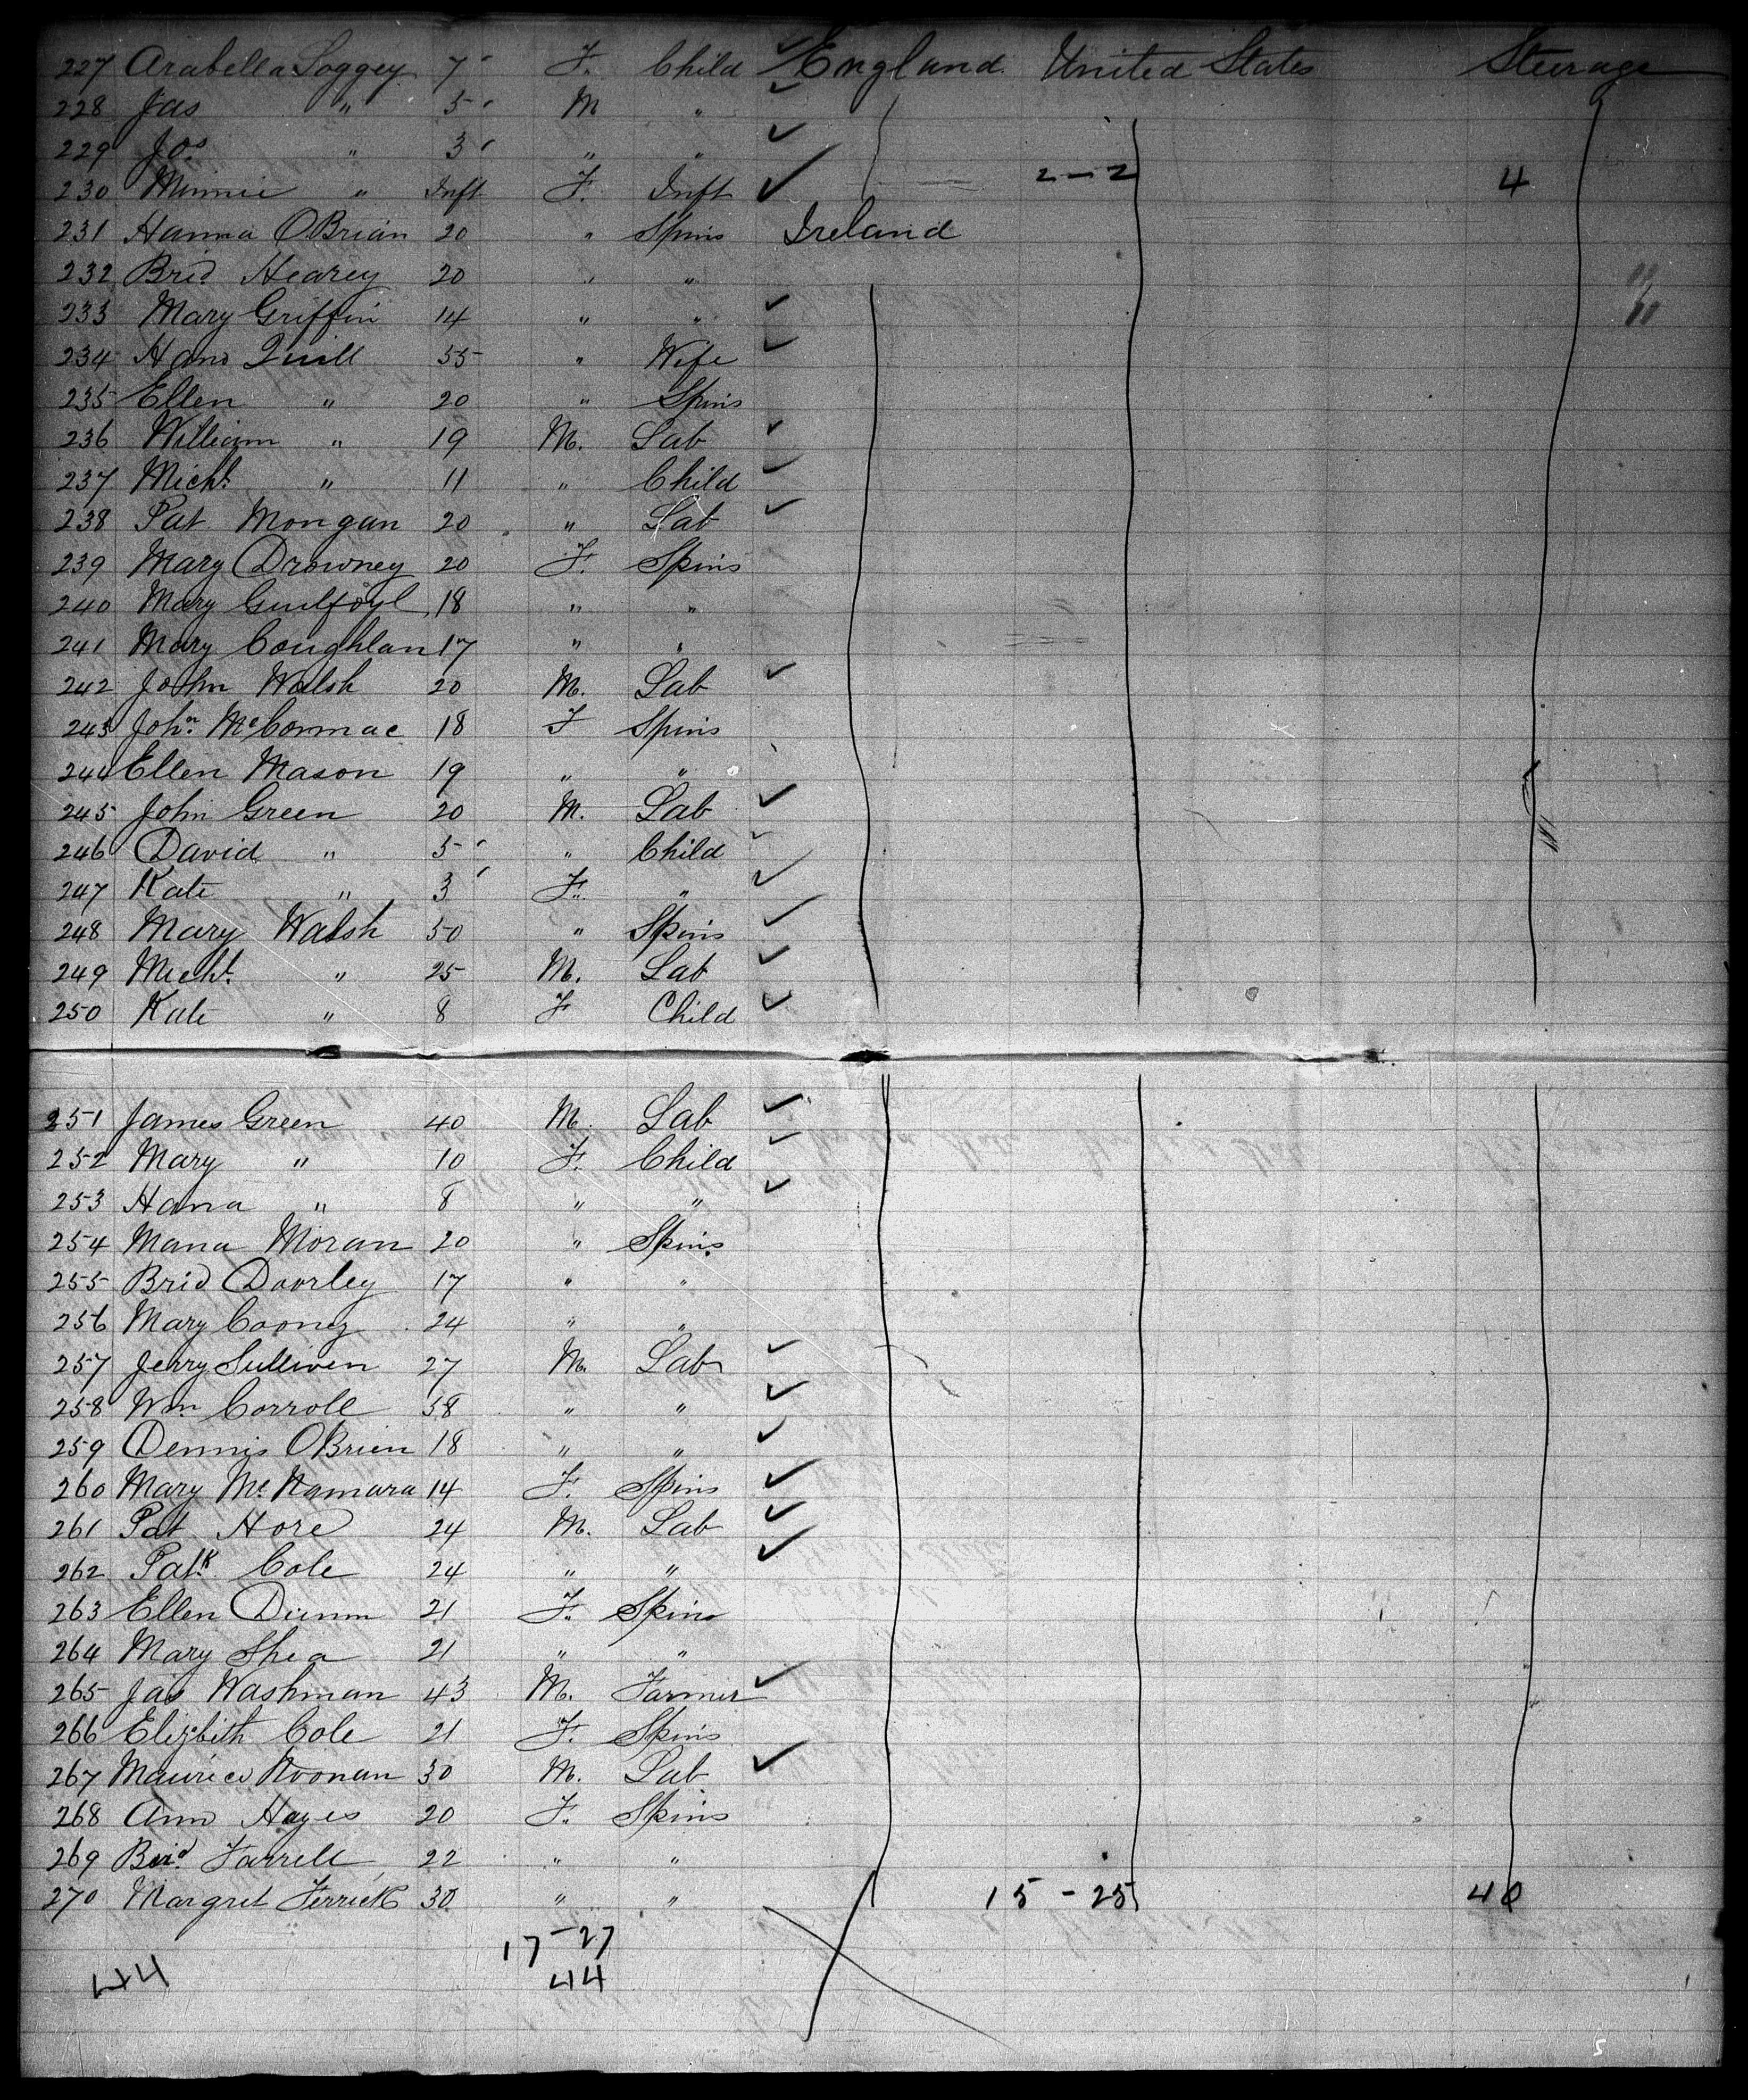 227 Arabella Loggey 7 F. Child England United States Steerage
228 Jas " 5 M "
229 Jos " 3 " "
230 Minnie " Inft F. Inft 2-2 4
231 Hanna OBrian 20 " Spins Ireland
232 Brid Hearey 20 " "
233 Mary Griffin 14 " "
234 Hano Quill 55 " Wife
235 Ellen " 20 " Spins
236 William " 19 M. Lab
237 Michl " 11 " Child
238 Pat Mongan 20 " Lab
239 Mary Drowney 20 F. Spins
240 Mary Guilfoyl 18 " "
241 Mary Coughlan 17 " "
242 John Walsh 20 M. Lab
243 John McCormac 18 F Spins
244 Ellen Mason 19 " "
245 John Green 20 M. Lab
246 David " 5 " Child
247 Kate " 3 F. "
248 Mary Walsh 50 " Spins
249 Michl " 25 M. Lab
250 Kate " 8 F Child
251 James Green 40 M. Lab
252 Mary " 10 F. Child
253 Hana " 8 " "
254 Mana Moran 20 " Spins
255 Brid Doorley 17 " "
256 Mary Cooney 24 " "
257 Jerry Sulliven 27 M. Lab
258 Wm Corroll 58 " "
259 Dennis OBrien 18 " "
260 Mary McNamara 14 F. Spins
261 Pat Hore 24 M. Lab
262 Patk Cole 24 " "
263 Ellen Dunn 21 F. Spins
264 Mary Shea 21 " "
265 Jas Washman 43 M. Farmer
266 Elizbith Cole 21 F. Spins
267 Maurice Noonan 30 M. Lab
268 Ann Hayes 20 F. Spins
269 Brid Farrell 22 " "
270 Margret Ferrick 30 " " 15-25 40
17-27
44 44